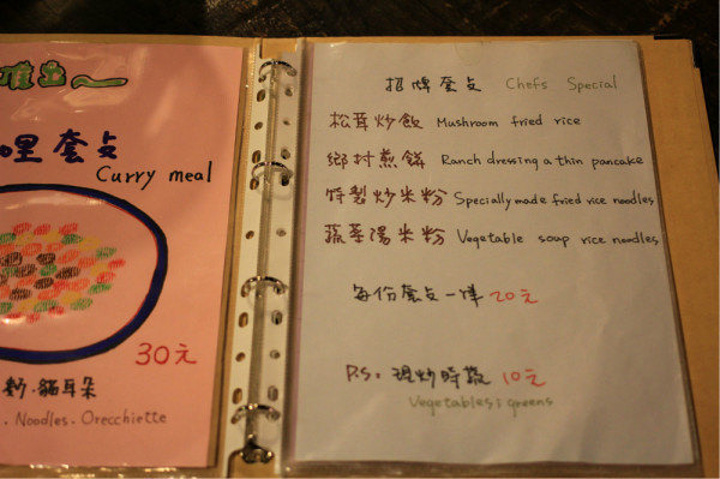 推出
哩套点
Curry meal
30元
貓耳朵
. Noodles. Orecchiette
招牌套点 Chefs Special
松茸炒飯 Mushroom fried rice
鄉村煎餅 Ranch dressing a thin pancake
特製炒米粉 Specially made fried rice noodles
蔬菜湯米粉 Vegetable soup rice noodles
每份套点一律 20元
P.S: 現炒時蔬 10元
Vegetables; greens